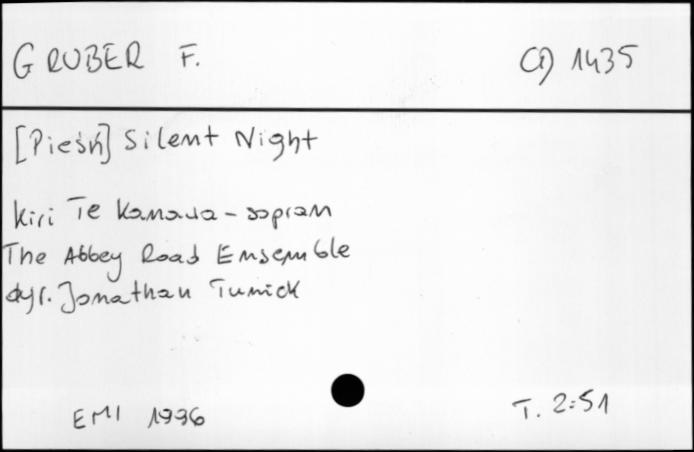 GRUBER F. CD 1435
[Pieśń] Silent Night
Kiri Te Kanawa - sopran
The Abbey Road Ensemble
dyr. Jonathan Tunick
EMI 1996 T. 2:51